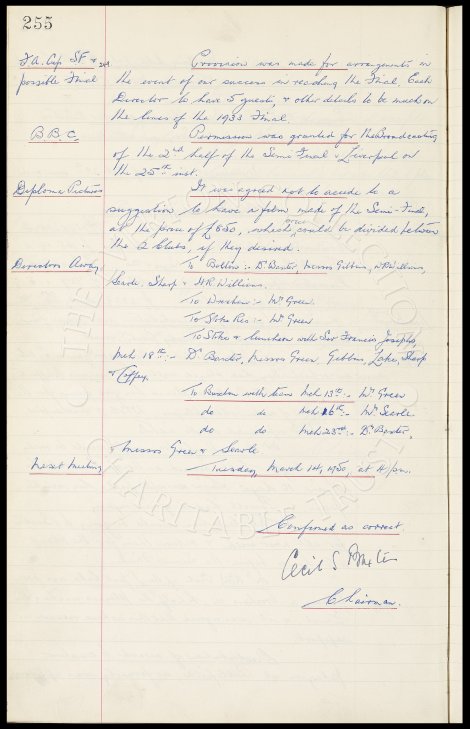 255
F.A. Cup SF &
possible Final
Provision was made for arrangements in
the event of our success in reaching the Final. Each
Director to have 5 guests, & other details to be much on
the lines of the 1933 Final
B.B.C.
Permission was granted for the Broadcasting
of the 2nd half of the Semi Final v Liverpool on
the 25th inst.
Diploma Pictures
It was agreed not to accede to a
suggestion to have a film made of the Semi-Final,
at the price of £850, which price could be divided between
the 2 Clubs, if they desired.
Directors Away
To Bolton :- Dr Baxter, Messrs Gibbins, W.R. Williams,
Searle, Sharp & H.R. Williams.
To :- Mr Green.
To Stoke Res :- Mr Green
To Stoke & luncheon with Sir Francis Joseph,
Mch 18th :- Dr Baxter, Messrs Green Gibbins, Lake, Sharp
& Coffey.
To Buxton with team Mch 13th :- Mr Green
do do Mch 16th :- Mr Searle
do do Mch 23rd :- Dr Baxter,
& Messrs Green & Searle
Next Meeting
Tuesday, March 14, 1950, at 4 pm.
Confirmed as correct
Cecil S Baxter
Chairman.
CHARITABLE TRUST